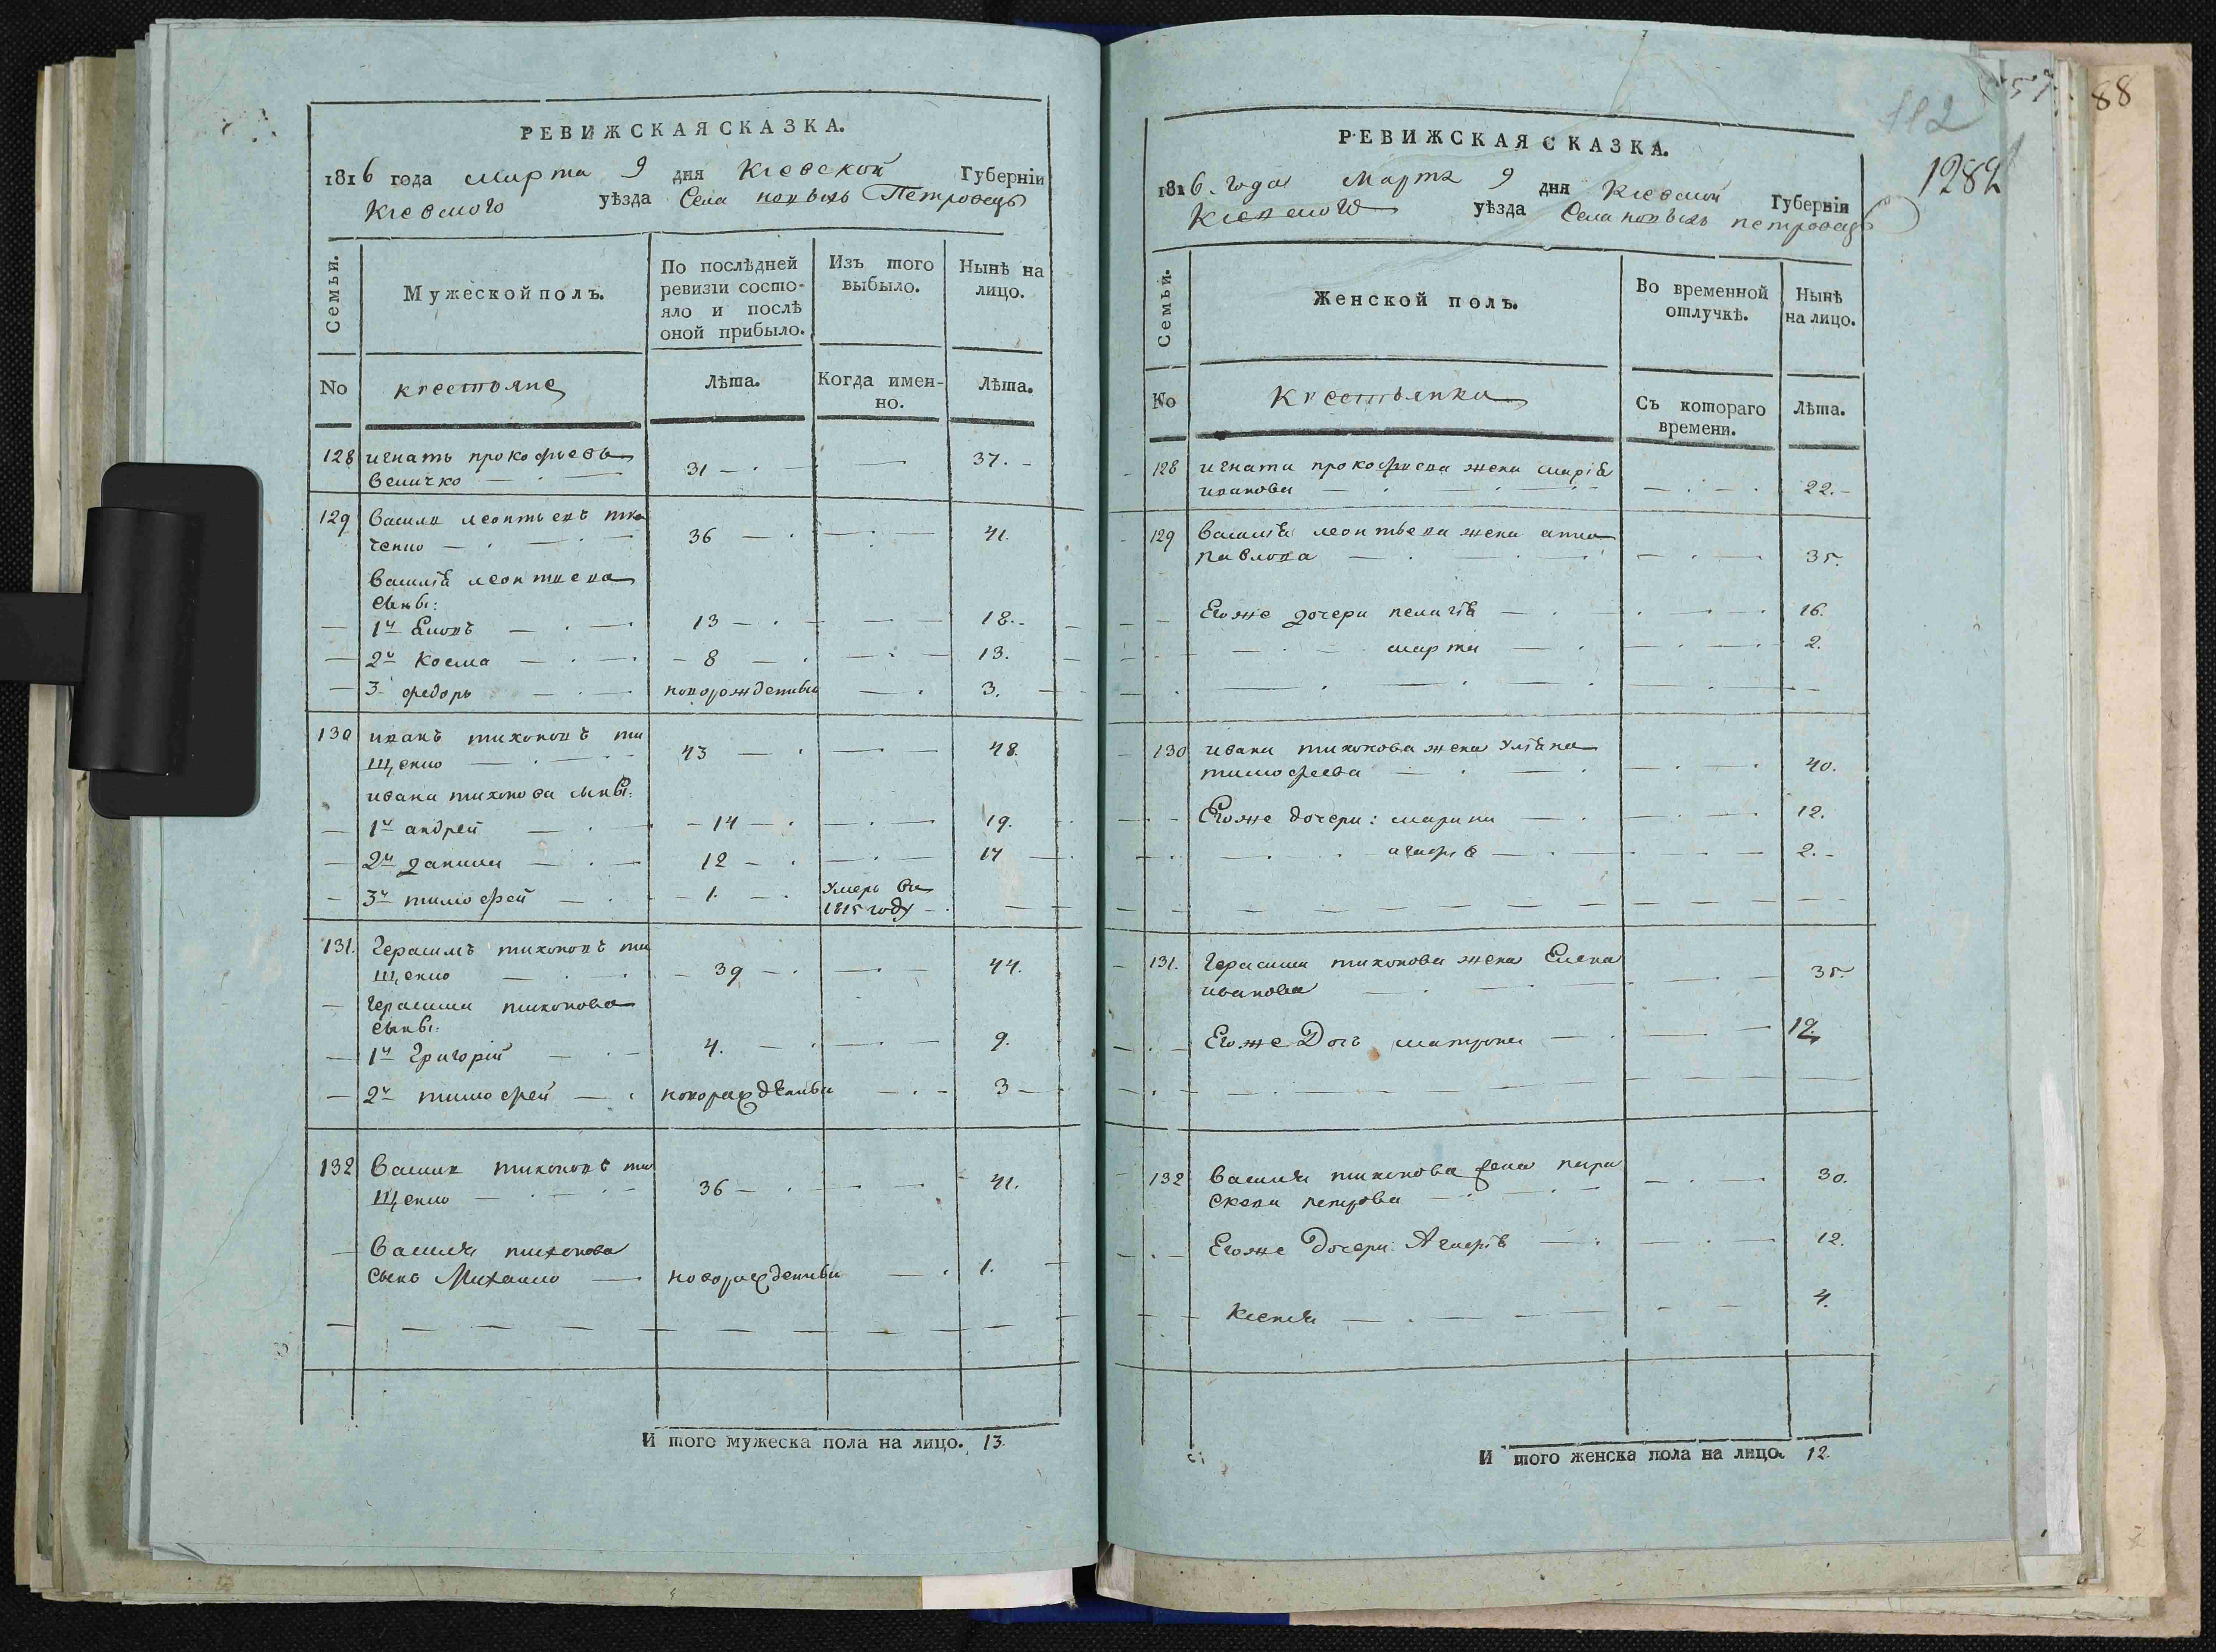 РЕВИЖСКАЯ СКАЗКА.
1816 года марта 9 дня Кіевской Губерніи
Кіевского уѣзда Села новыхъ Петровецъ
Семьи.
Мужеской полъ.
По послѣдней
ревизіи состо-
яло и послѣ
оной прибыло.
Изъ того
выбыло.
Нынѣ на
лицо.
No
крестьяне
Лѣта.
Когда имен-
но.
Лѣта.
128 игнатъ прокофьевъ
Величко 31 37.
129 Василь леонтьевъ тка
ченко 36 41.
Василія леонтиева
сыны:
1й Емовъ 13 18.
2й Косма 8 13.
3 федоръ новорожденный 3.
130 иванъ тихоновъ ти
щенко 43 48.
ивана тихонова сыны:
1й андрей 14 19.
2й данила 12 17
3й тимофей 1. умеръ въ
1815 году
131. Герасимъ тихоновъ ти
щенко 39 44.
Герасима тихонова
сыны:
1й Григорій 4. 9.
2й тимофей новорожденный 3
132 Василь тихоновъ ти
щенко 36 41.
Василя тихонова
сынъ Михайло новорожденный 1.
И того мужеска пола на лицо. 13.
88
57
112
1282
РЕВИЖСКАЯ СКАЗКА.
1816. года Марта 9 дня Кіевской Губерніи
Кіевского уѣзда Села новыхъ петровецъ
Семьи.
Женской полъ.
Во временной
отлучкѣ.
Нынѣ
на лицо.
No
Крестьянки
Съ котораго
времени.
Лѣта.
128 игната прокофиева жена марія
иванова 22.
129 Василія леонтьева жена анна
павлова 35.
Егоже дочери пелагія 16.
марта 2.
130 ивана тихонова жена уліяна
тимофеева 40.
Егоже дочери: марина 12.
агафія 2.
131. Герасима тихонова жена Елена
иванова 35.
Егоже Дочь матрона 12.
132 Василя тихонова жена пара
скева петрова 30.
Егоже Дочери: Агафія 12.
Ксенія 4.
И того женска пола на лицо. 12.